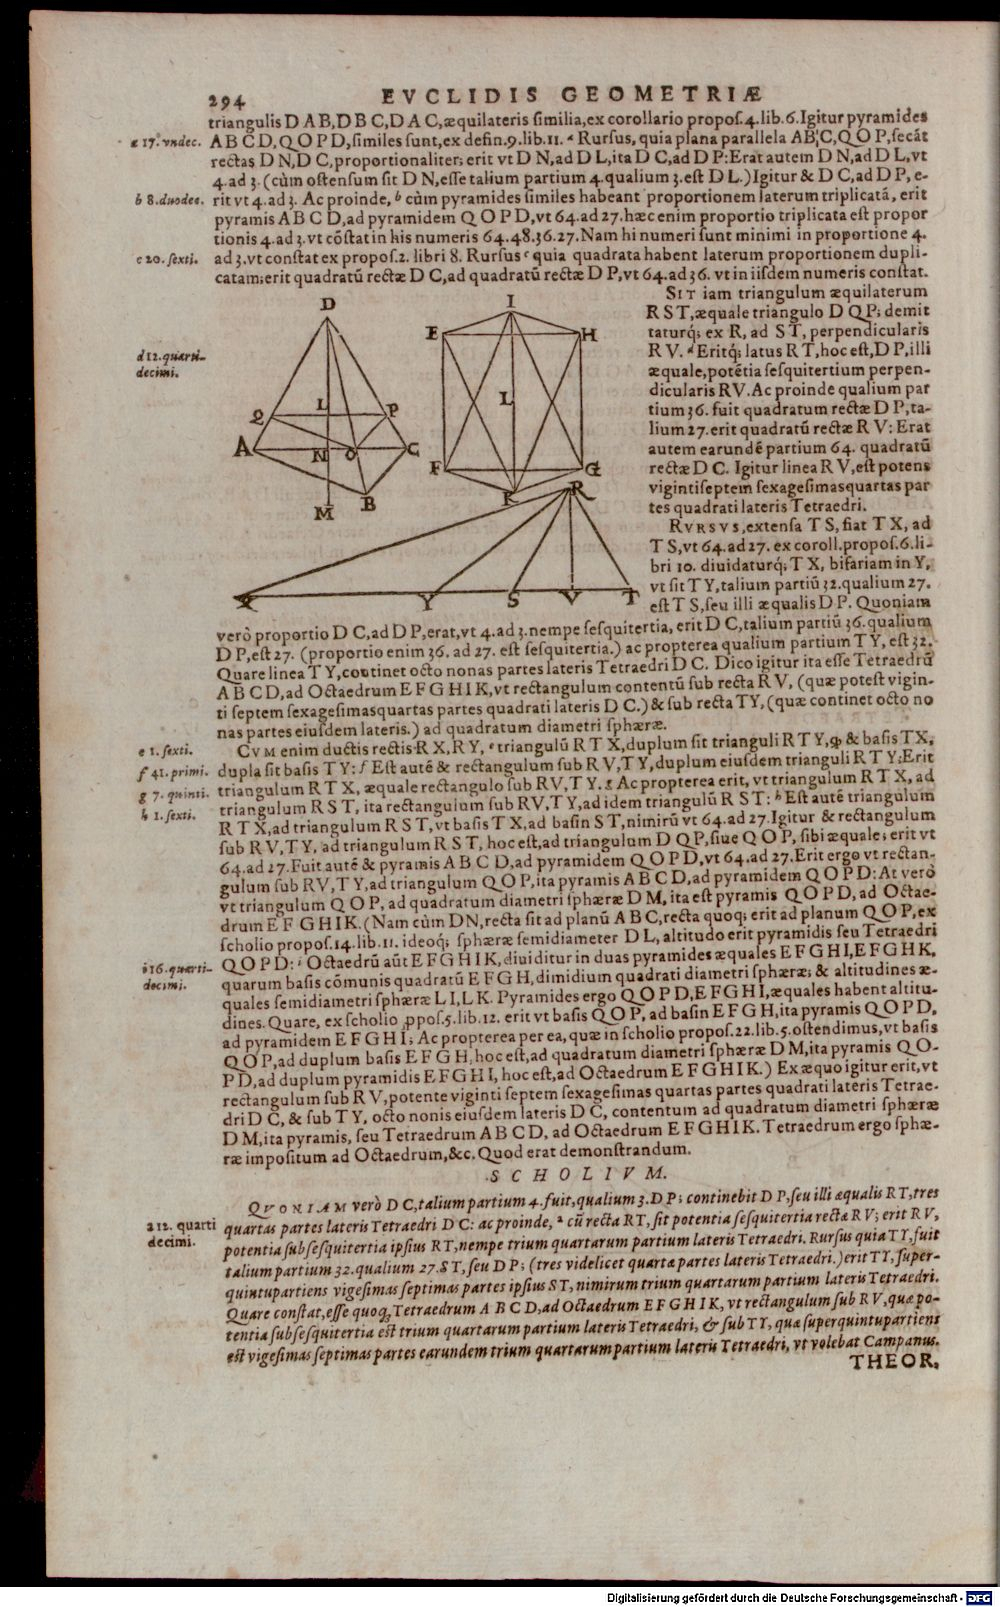 294 EVCLIDIS GEOMETRIÆ
triangulis D A B, D B C, D A C, æquilateris similia, ex corollario propos. 4. lib. 6. Igitur pyramides
a 17. vndec. A B C D, Q O P D, similes sunt, ex defin. 9. lib. 11. ᵃ Rursus, quia plana parallela AB,C, Q O P, secāt
rectas D N, D C, proportionaliter; erit vt D N, ad D L, ita D C, ad D P: Erat autem D N, ad D L, vt
4. ad 3. (cùm ostensum sit D N, esse talium partium 4. qualium 3. est D L.) Igitur & D C, ad D P, e-
b 8. duodec. rit vt 4. ad 3. Ac proinde, ᵇ cùm pyramides similes habeant proportionem laterum triplicatā, erit
pyramis A B C D, ad pyramidem Q O P D, vt 64. ad 27. hæc enim proportio triplicata est propor
tionis 4. ad 3. vt cōstat in his numeris 64. 48. 36. 27. Nam hi numeri sunt minimi in proportione 4.
c 20. sexti. ad 3. vt constat ex propos. 2. libri 8. Rursus ᶜ quia quadrata habent laterum proportionem dupli-
catam; erit quadratū rectæ D C, ad quadratū rectæ D P, vt 64. ad 36. vt in iisdem numeris constat.
SIT iam triangulum æquilaterum
R S T, æquale triangulo D Q P; demit
taturq́; ex R, ad S T, perpendicularis
d 12. quarti-
decimi.
R V. ᵈ Eritq́; latus R T, hoc est, D P, illi
æquale, potētia sesquitertium perpen-
dicularis R V. Ac proinde qualium par
tium 36. fuit quadratum rectæ D P, ta-
lium 27. erit quadratū rectæ R V: Erat
autem earundē partium 64. quadratū
rectæ D C. Igitur linea R V, est potens
vigintiseptem sexagesimasquartas par
tes quadrati lateris Tetraedri.
RVRSVS, extensa T S, fiat T X, ad
T S, vt 64. ad 27. ex coroll. propos. 6. li-
bri 10. diuidaturq́; T X, bifariam in Y,
vt sit T Y, talium partiū 32. qualium 27.
est T S, seu illi æqualis D P. Quoniam
D
Q L P
A N O C
M B
E I H
L
F K G
R
X Y S V T
verò proportio D C, ad D P, erat, vt 4. ad 3. nempe sesquitertia, erit D C, talium partiū 36. qualium
D P, est 27. (proportio enim 36. ad 27. est sesquitertia.) ac propterea qualium partium T Y, est 32.
Quare linea T Y, continet octo nonas partes lateris Tetraedri D C. Dico igitur ita esse Tetraedrū
A B C D, ad Octaedrum E F G H I K, vt rectangulum contentū sub recta R V, (quæ potest vigin-
ti septem sexagesimasquartas partes quadrati lateris D C.) & sub recta TY, (quæ continet octo no
nas partes eiusdem lateris.) ad quadratum diametri sphæræ.
e 1. sexti. CVM enim ductis rectis R X, R Y, ᵉ triangulū R T X, duplum sit trianguli R T Y, ꝙ & basis TX,
f 41. primi. dupla sit basis T Y: f Est autē & rectangulum sub R V, T Y, duplum eiusdem trianguli R T Y: Erit
g 7. quinti. triangulum R T X, æquale rectangulo sub R V, T Y. g Ac propterea erit, vt triangulum R T X, ad
h 1. sexti. triangulum R S T, ita rectangulum sub RV, T Y, ad idem triangulū R S T: ʰ Est autē triangulum
R T X, ad triangulum R S T, vt basis T X, ad basin S T, nimirū vt 64. ad 27. Igitur & rectangulum
sub R V, T Y, ad triangulum R S T, hoc est, ad triangulum D Q P, siue Q O P, sibi æquale; erit vt
64. ad 27. Fuit autē & pyramis A B C D, ad pyramidem Q O P D, vt 64. ad 27. Erit ergo vt rectan-
gulum sub RV, T Y, ad triangulum Q O P, ita pyramis A B C D, ad pyramidem Q O P D: At verò
vt triangulum Q O P, ad quadratum diametri sphæræ D M, ita est pyramis Q O P D, ad Octae-
drum E F G H I K. (Nam cùm D N, recta sit ad planū A B C, recta quoq́; erit ad planum Q O P, ex
scholio propos. 14. lib. 11. ideoq́; sphæræ semidiameter D L, altitudo erit pyramidis seu Tetraedri
i 16. quarti-
decimi.
Q O P D: ⁱ Octaedrū aūt E F G H I K, diuiditur in duas pyramides æquales E F G H I, E F G H K,
quarum basis cōmunis quadratū E F G H, dimidium quadrati diametri sphæræ; & altitudines æ-
quales semidiametri sphæræ L I, L K. Pyramides ergo Q O P D, E F G H I, æquales habent altitu-
dines. Quare, ex scholio ꝓpos. 5. lib. 12. erit vt basis Q O P, ad basin E F G H, ita pyramis Q O P D,
ad pyramidem E F G H I; Ac propterea per ea, quæ in scholio propos. 22. lib. 5. ostendimus, vt basis
Q O P, ad duplum basis E F G H, hoc est, ad quadratum diametri sphæræ D M, ita pyramis Q O-
P D, ad duplum pyramidis E F G H I, hoc est, ad Octaedrum E F G H I K.) Ex æquo igitur erit, vt
rectangulum sub R V, potente viginti septem sexagesimas quartas partes quadrati lateris Tetrae-
dri D C, & sub T Y, octo nonis eiusdem lateris D C, contentum ad quadratum diametri sphæræ
D M, ita pyramis, seu Tetraedrum A B C D, ad Octaedrum E F G H I K. Tetraedrum ergo sphæ-
ræ impositum ad Octaedrum, &c. Quod erat demonstrandum.
SCHOLIVM.
QVONIAM verò D C, talium partium 4. fuit, qualium 3. D P; continebit D P, seu illi æqualis R T, tres
a 12. quarti
decimi.
quartas partes lateris Tetraedri D C: ac proinde, ᵃ cū recta R T, sit potentia sesquitertia rectæ R V; erit R V,
potentia subsesquitertia ipsius R T, nempe trium quartarum partium lateris Tetraedri. Rursus quia T Y, fuit
talium partium 32. qualium 27. S T, seu D P; (tres videlicet quartæ partes lateris Tetraedri.) erit T Y, super-
quintupartiens vigesimas septimas partes ipsius S T, nimirum trium quartarum partium lateris Tetraedri.
Quare constat, esse quoq́; Tetraedrum A B C D, ad Octaedrum E F G H I K, vt rectangulum sub R V, quæ po-
tentia subsesquitertia est trium quartarum partium lateris Tetraedri, & sub T Y, quæ superquintupartiens
est vigesimas septimas partes earundem trium quartarum partium lateris Tetraedri, vt volebat Campanus.
THEOR.
Digitalisierung gefördert durch die Deutsche Forschungsgemeinschaft - DFG